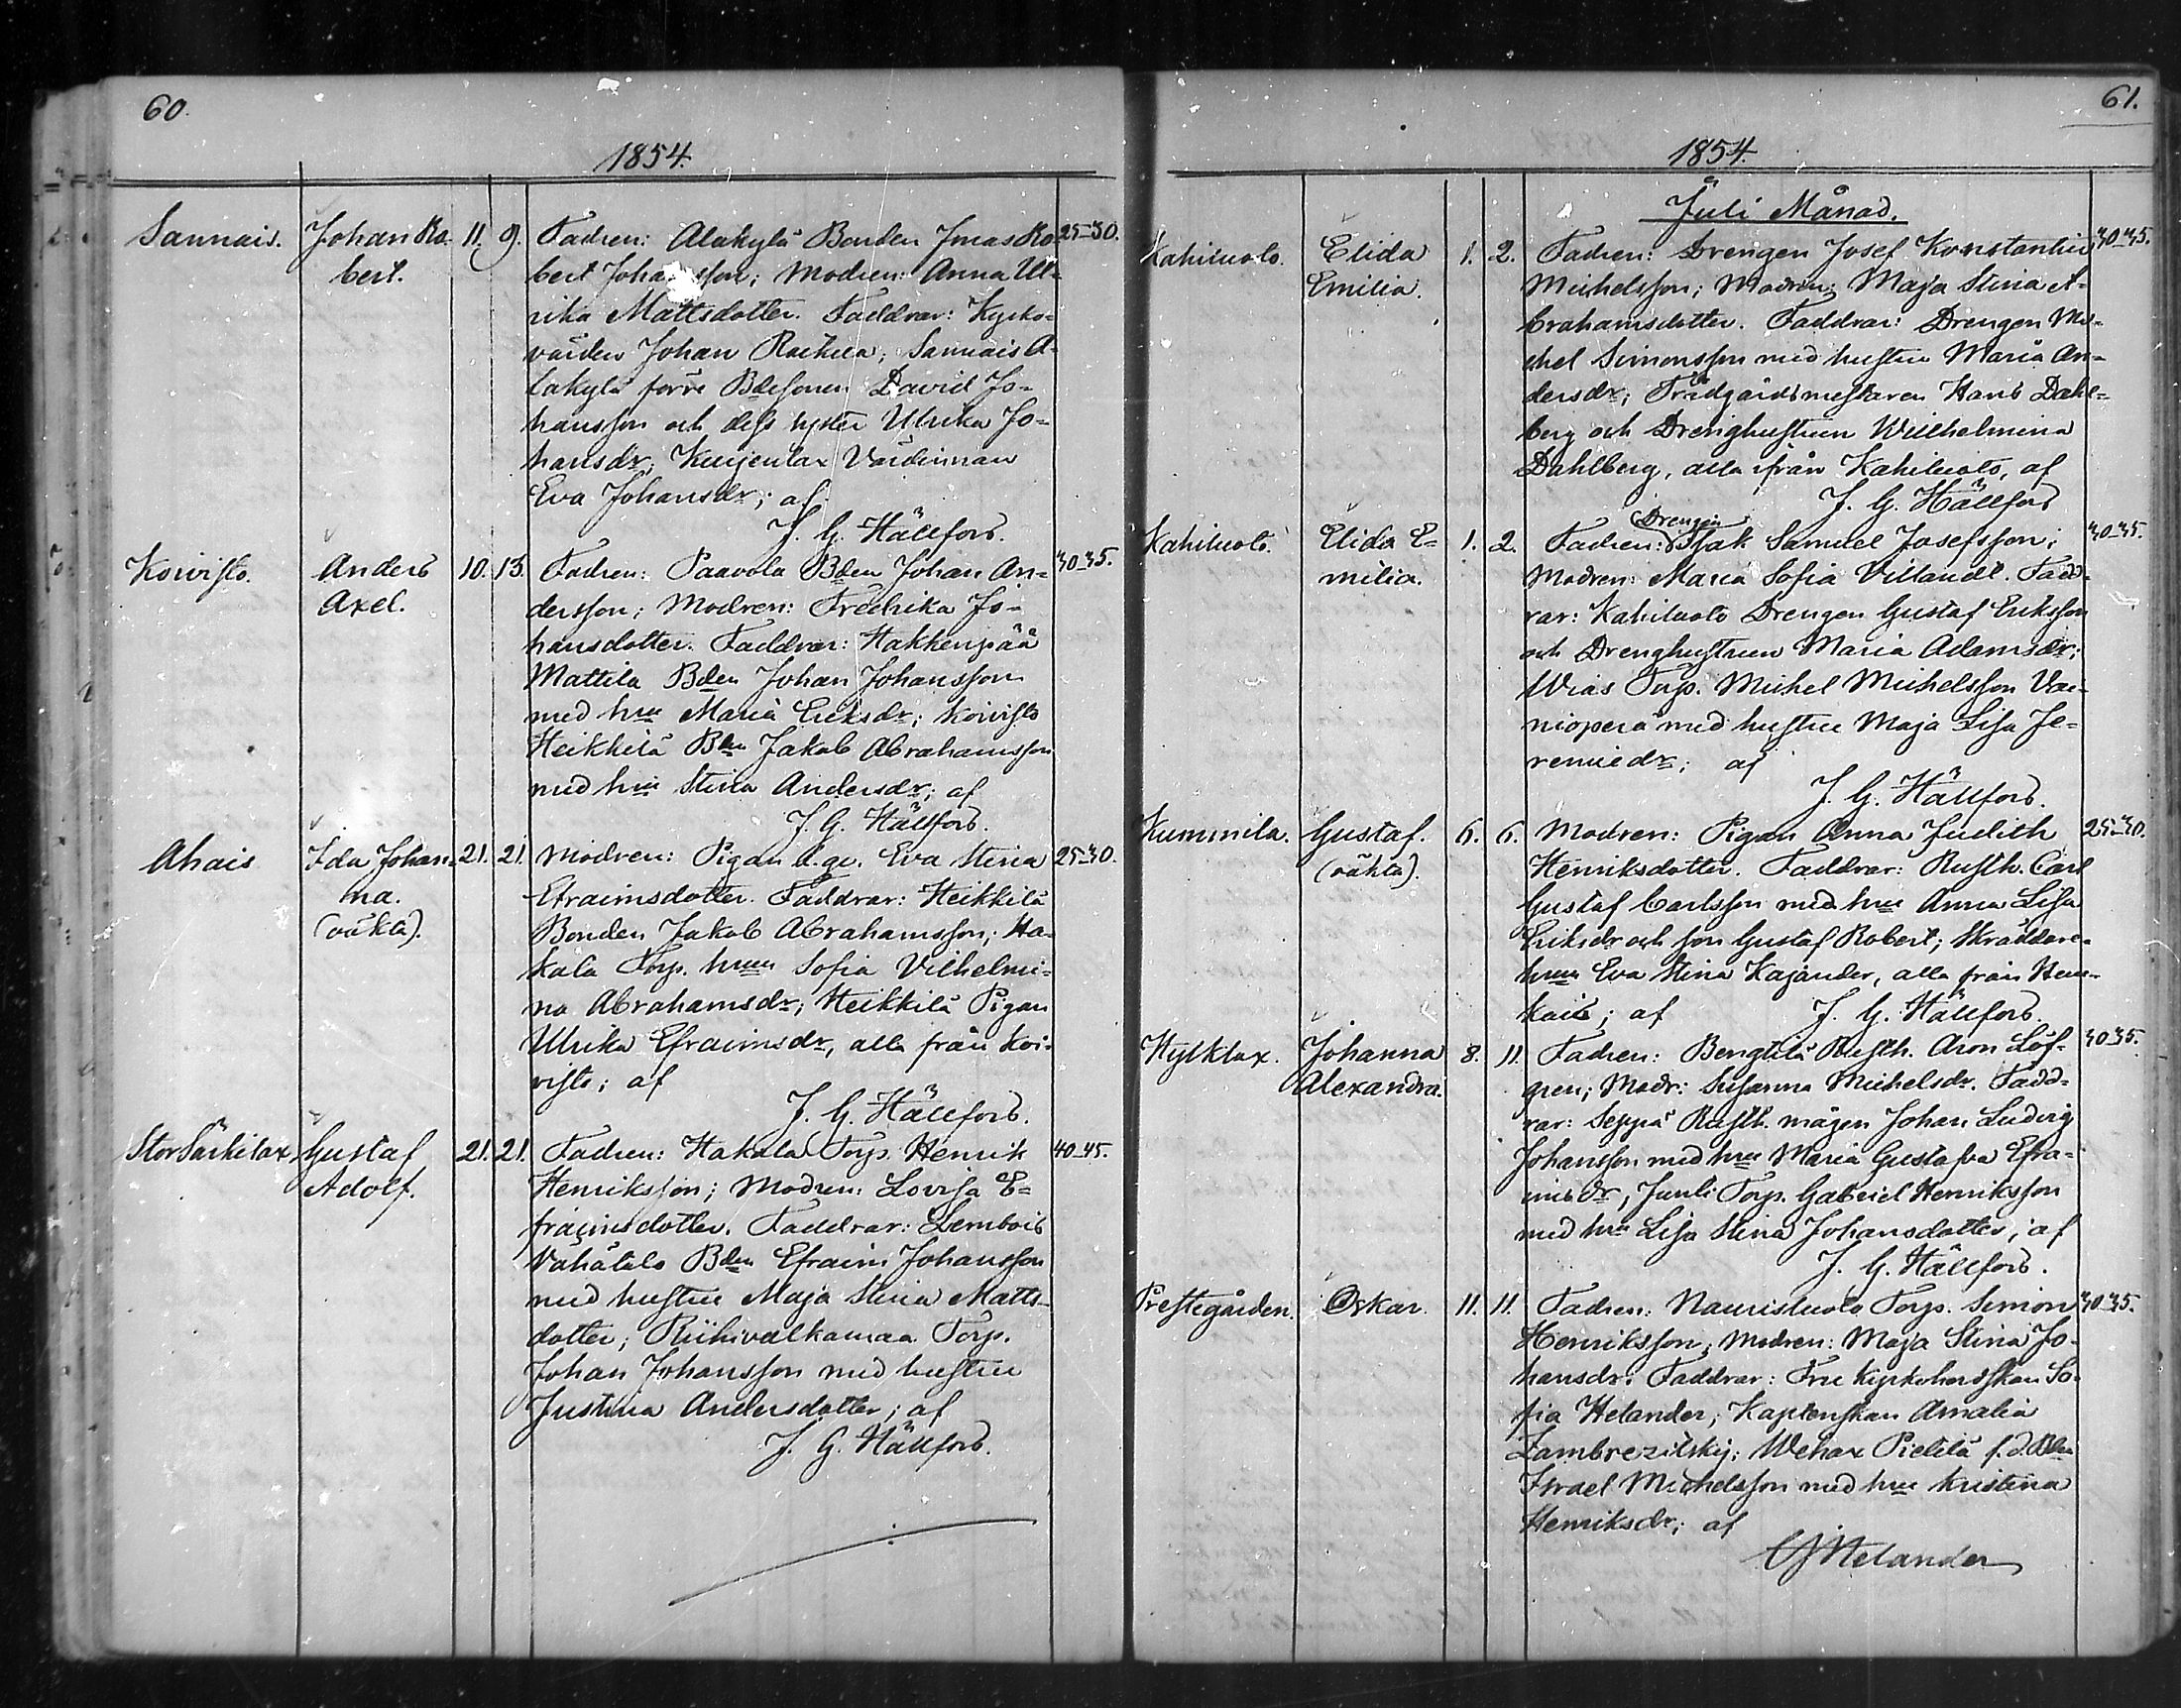 60.
1854.
Sannais. Johan Ro- 11. 9. Fadren: Alakylä Bonden Jonas Ro- 25-30.
bert. bert Johansson; Modren: Anna Ul-
rika Mattsdotter. Faddrar: Kyrko-
värden Johan; Sannais A-
lakylä förre Bdesonen David Jo-
hansson och dess syster Ulrika Jo-
hansdr; Kuijenlax Värdinnan
Eva Johansdr; af
J. G. Hällfors.
Koivisto. Anders 10. 13. Fadren: Paavola Bden Johan An- 30-35.
Axel. dersson; Modren: Fredrika Jo-
hansdotter. Faddrar: Hakkenpää
Mattila Bden Johan Johansson
med hru Maria Eriksdr; Koivisto
Heikkilä Bden Jakob Abrahamsson
med hru Stina Andersdr; af
J. G. Hällfors.
Ahais Ida Johan- 21. 21. Modren: Pigan d.gr. Eva Stina 25-30.
na. Efraimsdotter. Faddrar: Heikkilä
(oäkta). Bonden Jakob Abrahamsson; Ha-
kala Torp. hrun Sofia Vilhelmi-
na Abrahamsdr; Heikkilä Pigan
Ulrika Efraimsdr, alla från Koi-
visto; af
J. G. Hällfors.
Stor Särkilax Gustaf 21. 21. Fadren: Hakala Torp. Henrik 40-45.
Adolf. Henriksson; Modren: Lovisa E-
fraimsdotter. Faddrar: Lembois
Vähätalo Bden Efraim Johansson
med hustru Maja Stina Matts-
dotter; Riihivalkamaa Torp.
Johan Johansson med hustru
Justina Andersdotter; af
J. G. Hällfors.
61.
1854.
Juli Månad.
Kahiluoto. Elida 1. 2. Fadren: Drengen Josef Konstantin 40-45.
Emilia. Michelsson; Modren: Maja Stina A-
brahamsdotter. Faddrar: Drengen Mi-
chel Simonsson med hustru Maria An-
dersdr; Trädgårdsmestaren Hans Dahl-
berg och Drenghustrun Wilhelmina
Dahlberg, alla ifrån Kahiluoto, af
J. G. Hällfors
Drengen
Kahiluoto. Elida E- 1. 2. Fadren: Isak Samuel Josefsson; 30-35.
milia. Modren: Maria Sofia Villandt. Fadd-
rar: Kahiluoto Drengen Gustaf Eriksson
och Drenghustrun Maria Adamsdr;
Wias Torp. Michel Michelsson Vai-
nioperä med hustru Maja Lisa Je-
remiedr; af
J. G. Hällfors.
Kummila. Gustaf. 6. 6. Modren: Pigan Anna Judith 25-30.
(oäkta). Henriksdotter. Faddrar: Rusth. Carl
Gustaf Carlsson med hru Anna Lisa
Eriksdr och son Gustaf Robert; Skräddare-
hrun Eva Stina Kajander, alla från Hem-
kais; af J. G. Hällfors.
Hylklax. Johanna 8. 11. Fadren: Bengtilä Rusth. Aron Löf- 30-35.
Alexandra. gren; Modr: Susanna Michelsdr. Fadd-
rar: Seppä Rusth. mågen Johan Ludvig
Johansson med hru Maria Gustafva Efra-
imsdr; Junli Torp. Gabriel Henriksson
med hru Lisa Stina Johansdotter; af
J. G. Hällfors.
Prestegården. Oskar. 11. 11. Fadren: Naurisluoto Torp. Simon 30-35.
Henriksson; Modren: Maja Stina Jo-
hansdr. Faddrar: Fru Kyrkoherdskan So-
fia Helander; Kaptenskan Amalia
Zambrezitskij; Wehax Pietilä f.d. Bden
Israel Michelsson med hru Kristina
Henriksdr; af
CJ Helander